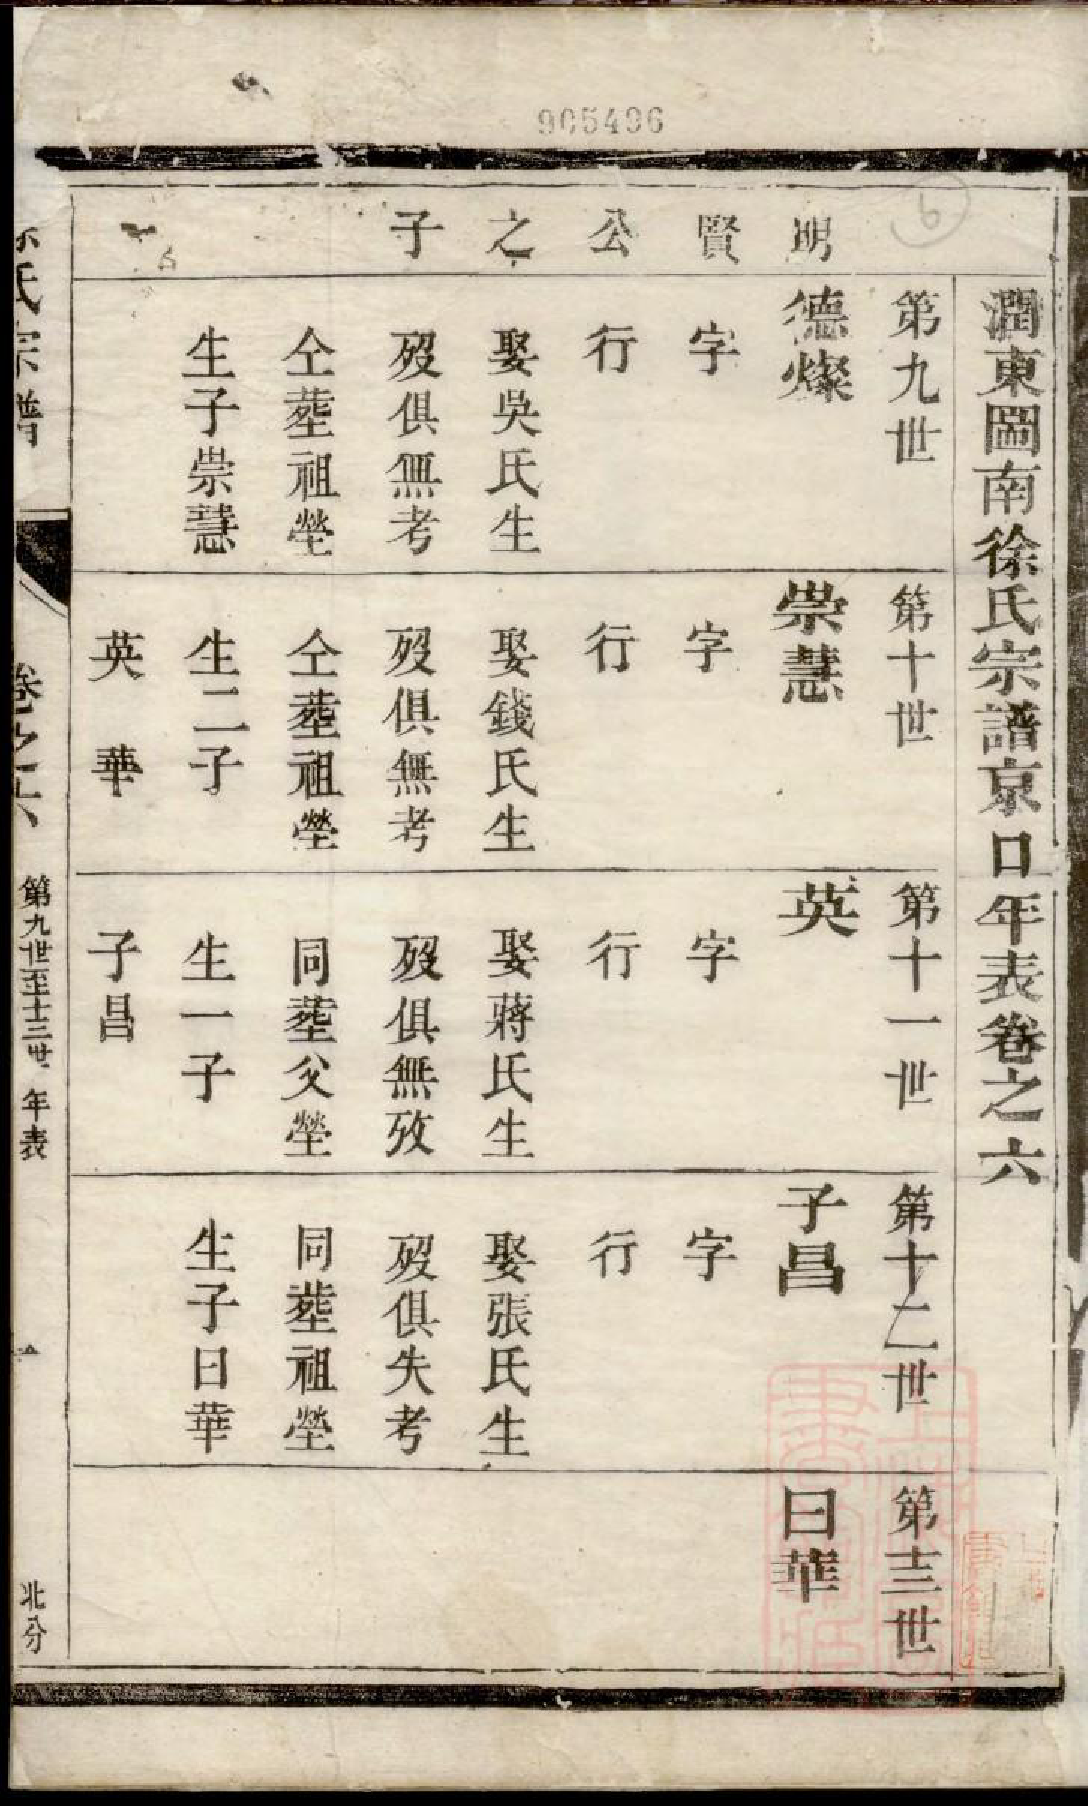 905496
6
潤東圌南徐氏宗譜京口年表卷之六
明賢公之子
第九世
德燦
字
行
娶吳氏生
歿俱無考
仝塟祖塋
生子崇慧
第十世
崇慧
字
行
娶錢氏生
歿俱無考
仝塟祖塋
生二子
英 華
第十一世
英
字
行
娶蔣氏生
歿俱無攷
同塟父塋
生一子
子昌
第十二世
子昌
字
行
娶張氏生
歿俱失考
同塟祖塋
生子日華
第十三世
日華
氏宗譜
卷之六
第九世至十三世 年表
一
北分